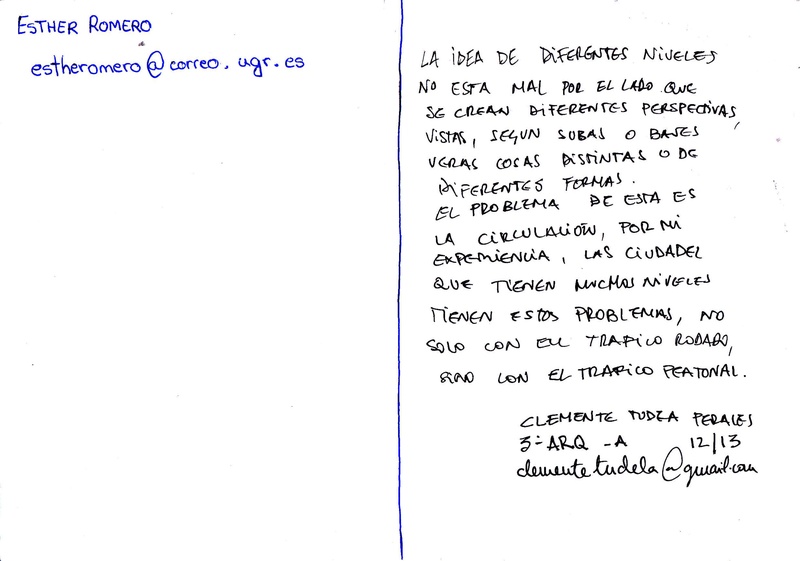 ESTHER ROMERO
estheromero@correo.ugr.es
LA IDEA DE DIFERENTES NIVELES
NO ESTA MAL POR EL LADO QUE
SE CREAN DIFERENTES PERSPECTIVAS,
VISTAS, SEGUN SUBAS O BAJES
VERAS COSAS DISTINTAS O DE
DIFERENTES FORMAS.
EL PROBLEMA DE ESTA ES
LA CIRCULACIÓN, POR MI
EXPERIENCIA, LAS CIUDADEL
QUE TIENEN MUCHOS NIVELES
TIENEN ESTOS PROBLEMAS, NO
SOLO CON EL TRAFICO RODADO,
SINO CON EL TRAFICO PEATONAL.
CLEMENTE TUDELA PERALES
3º ARQ -A 12/13
clementetudela@gmail.com